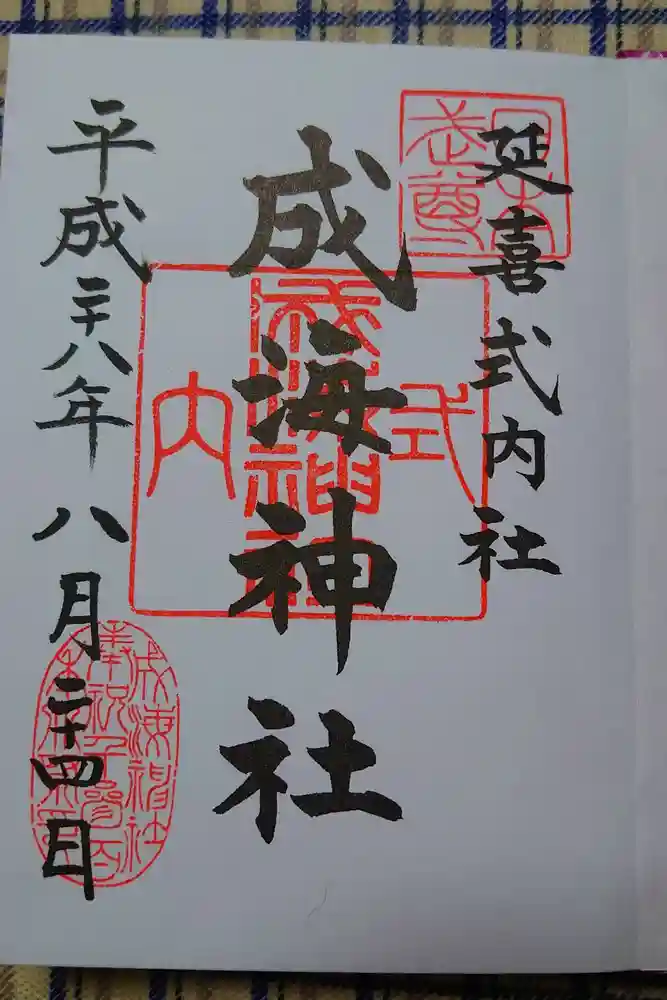 延喜式内社
成海神社
平成二十八年八月二十四日
式
内
成海神社